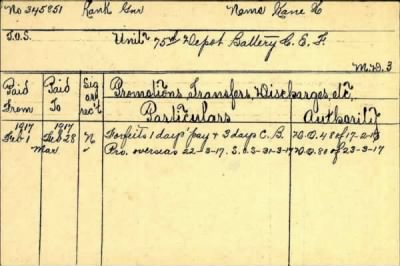 No 345851 Rank Gnr Name Kane H
T.O.S. Unit 75th Depot Battery C.E.F.
M.D. 3
Paid From Paid To Sig or rec't Promotions, Transfers, Discharges, etc. Particulars Authority
1917 1917
Feb 1 Feb 28 N Forfeits 1 days' pay & 3 days C.B. D.O. 48 of 17-2-17
Mar. Pro. overseas 22-3-17. S.O.S-31-3-17 D.O. 80 of 23-3-17